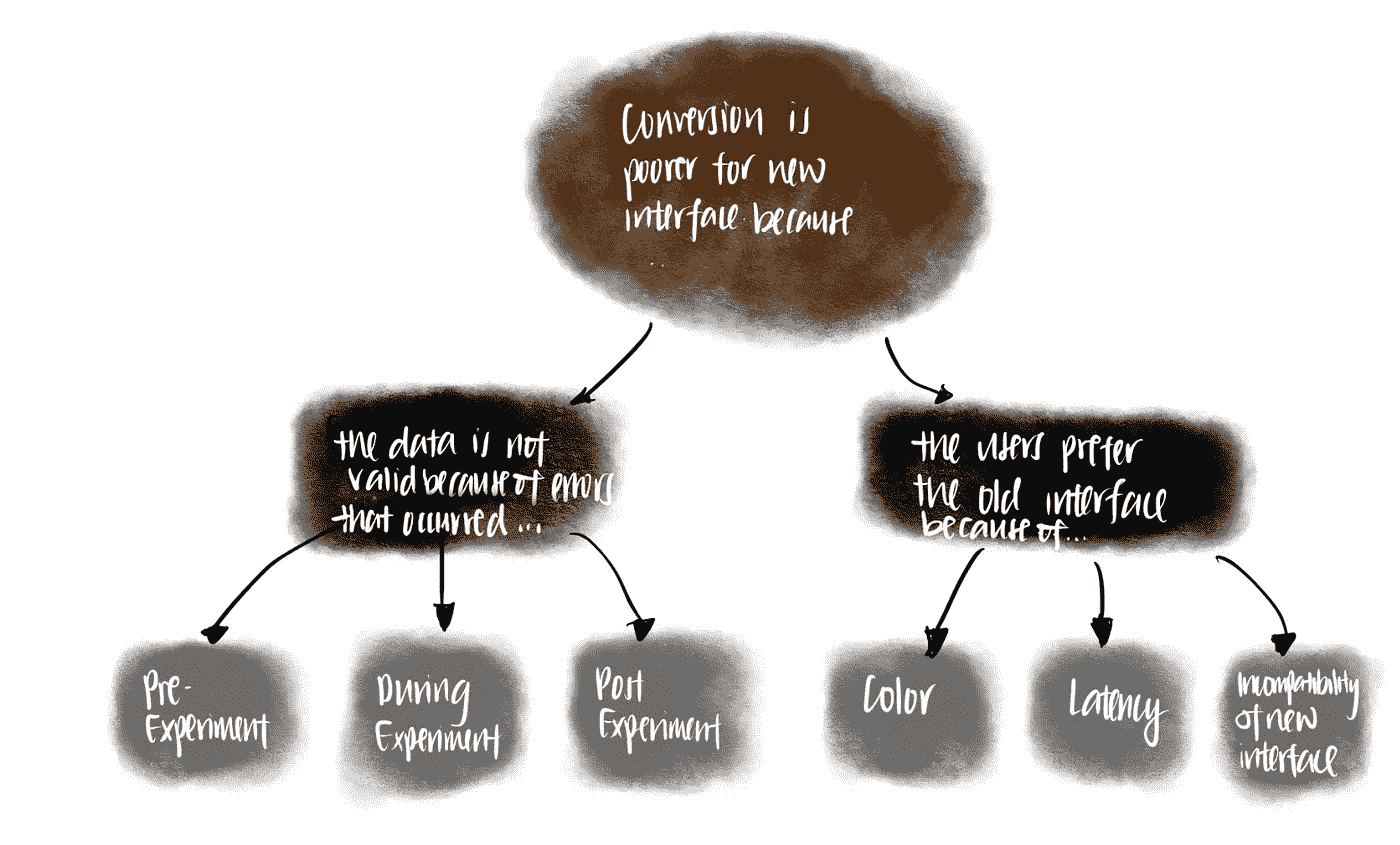 Conversion is
poorer for new
interface because
...
the data is not
valid because of errors
that occurred...
the users prefer
the old interface
because of...
Pre-
Experiment
During
Experiment
Post
Experiment
Color
Latency
Incompatibility
of new
interface